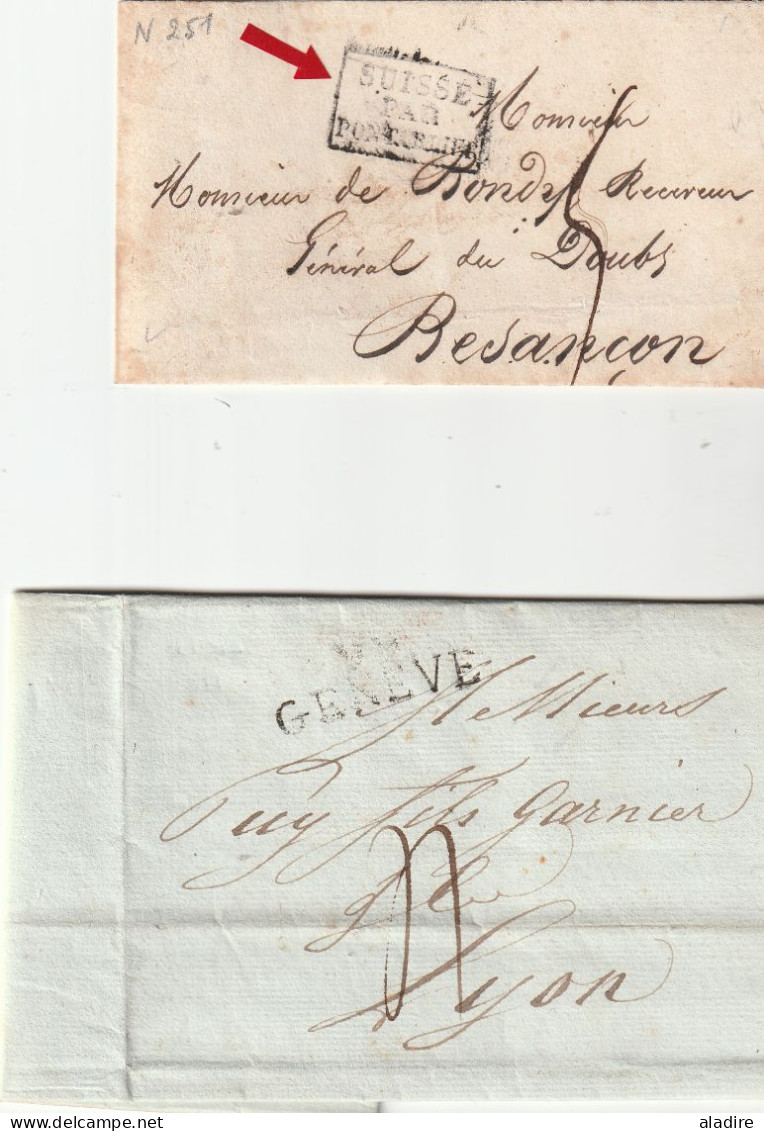 N 251
SUISSE
PAR
PONTARLIER
Monsieur
Monsieur de Bondy Receveur
Général du Doubs
Besançon
GENEVE
Messieurs
Puy fils Garnier
Lyon
© aladire